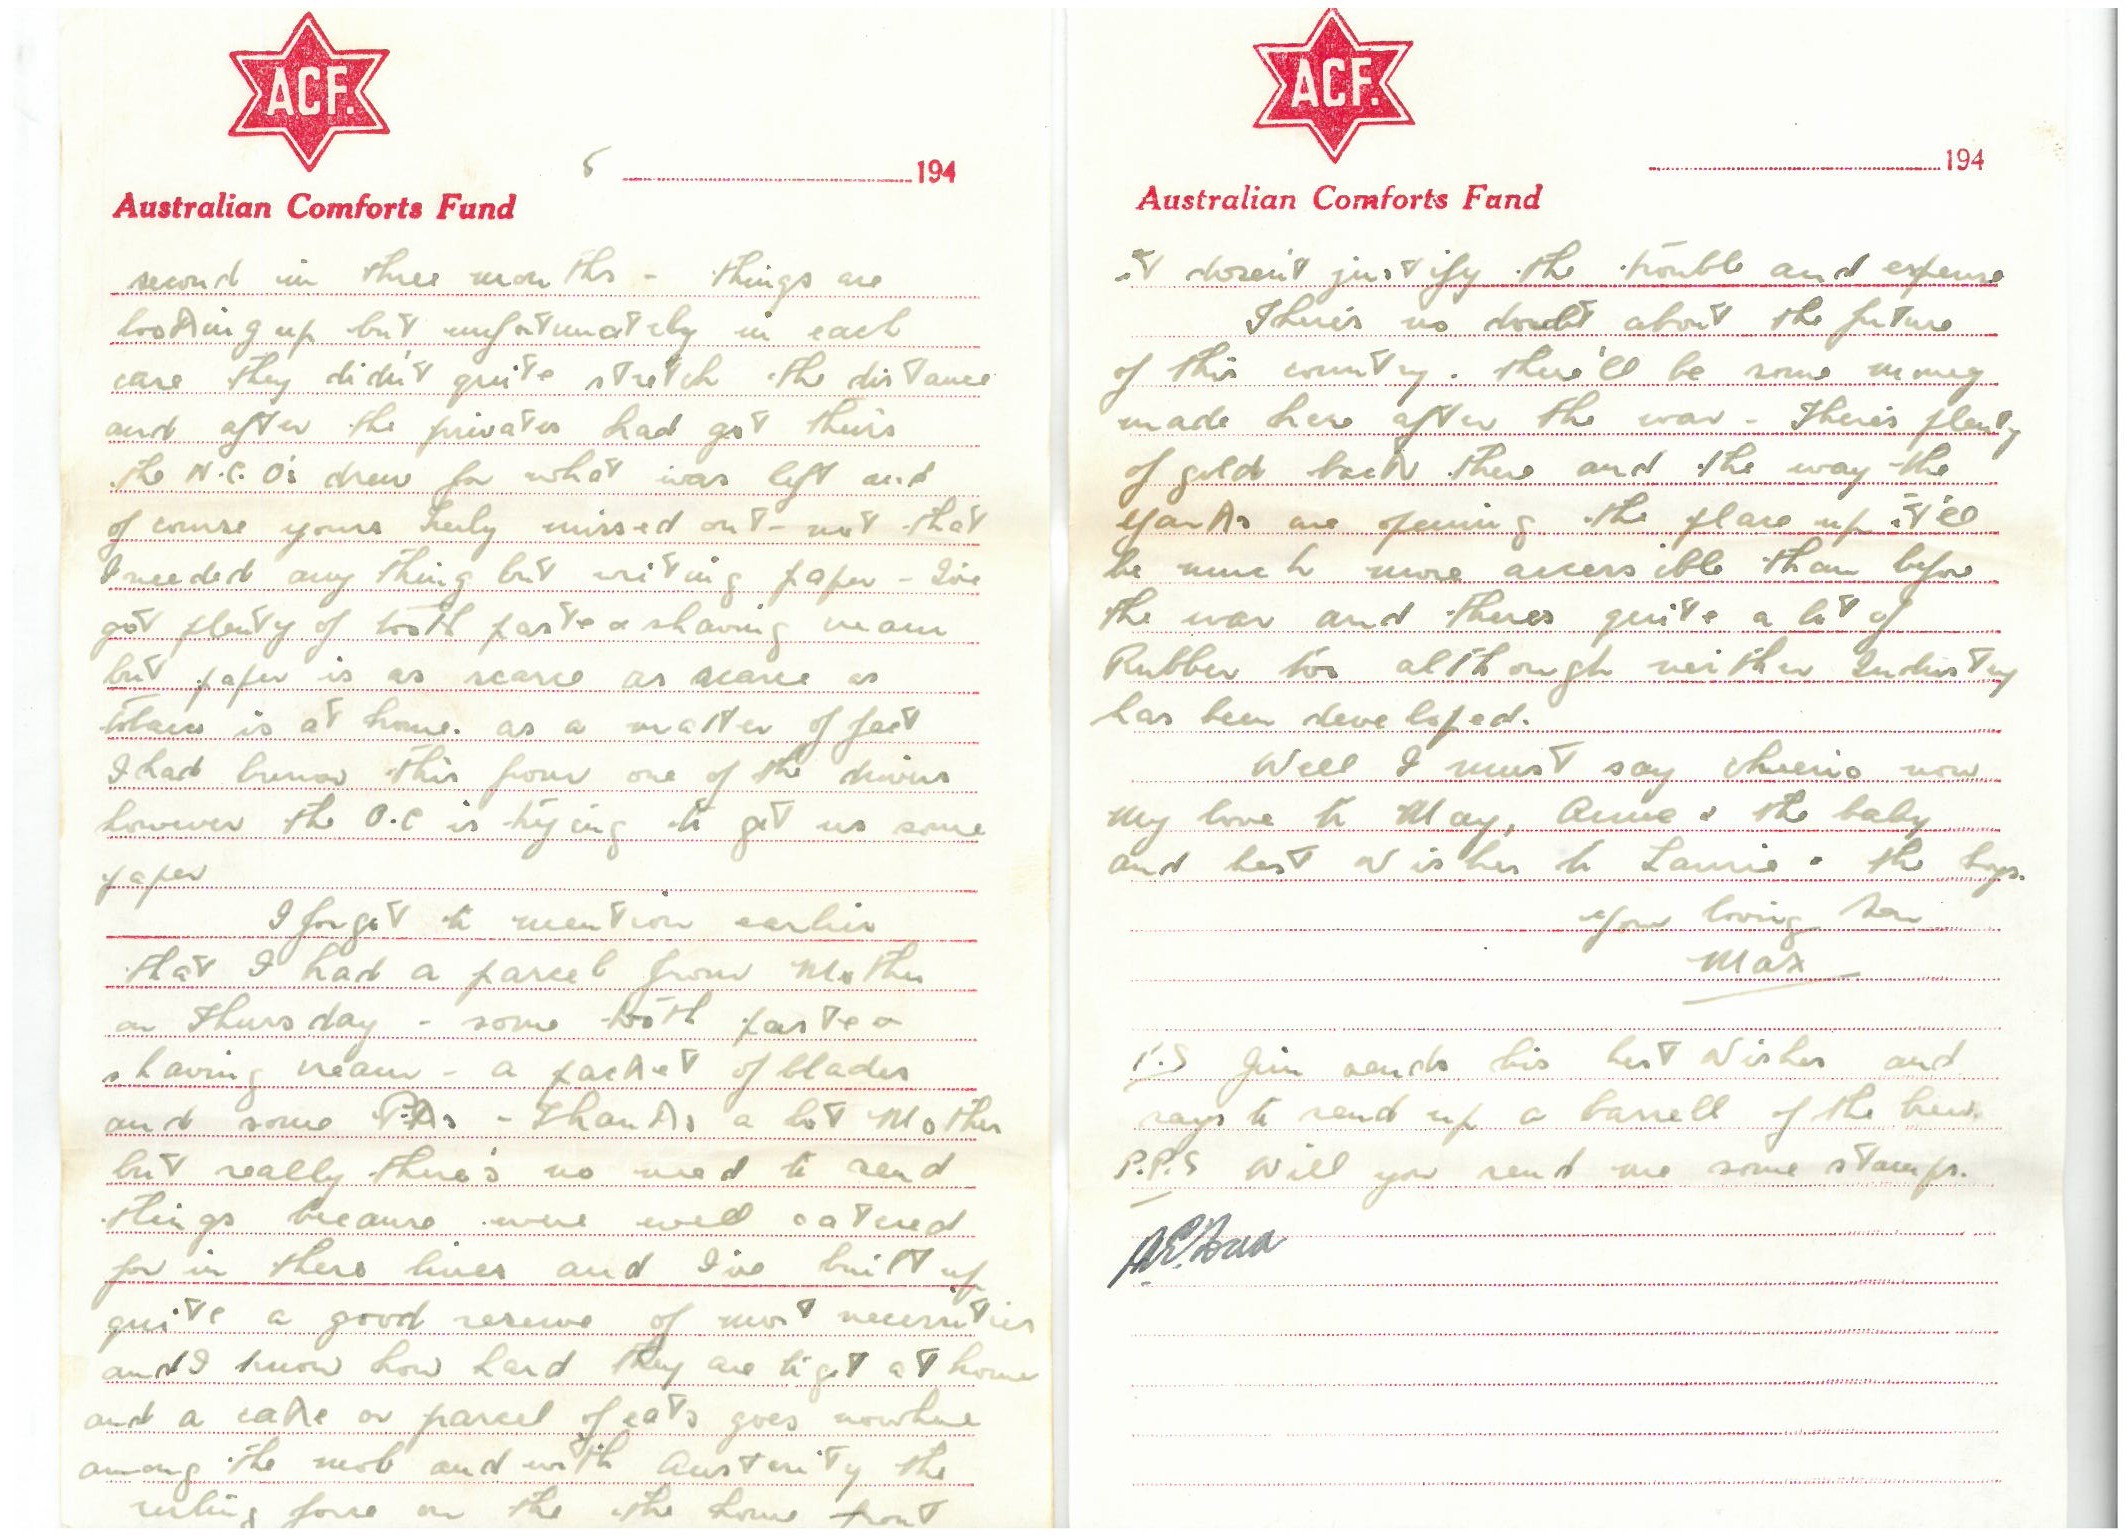 ACF.
5 194
Australian Comforts Fund
second in three months - things are
looking up but unfortunately in each
case they didn't quite stretch the distance
and after the privates had got theirs
the N.C.O's drew for what was left and
of course yours truly missed out - not that
I needed any thing but writing paper - I've
got plenty of tooth paste & shaving cream
but paper is as scarce as scarce as
tobacco is at home. as a matter of fact
I had borrow this from one of the drivers
however the O.C is trying to get us some
paper
I forgot to mention earlier
that I had a parcel from Mother
on Thursday - some tooth paste &
shaving cream - a packet of blades
and some - Thanks a lot Mother
but really there's no need to send
things because were well catered
for in these lines and I've built up
quite a good reserve of most necessities
and I know how hard they are to get at home
and a cake or parcel of eats goes nowhere
among the mob and with Austerity the
ruling force on the the home front
ACF.
194
Australian Comforts Fund
it doesn't justify the trouble and expense
There's no doubt about the future
of this country. there'll be some money
made here after the war - There's plenty
of gold back there and the way the
Yanks are opening the place up it'll
be much more accessible than before
the war and theres quite a lot of
Rubber too although neither Industry
has been developed.
Well I must say cheerio now
my love to May, Anne & the baby
and best Wishes to Laurie & the boys.
Your loving Son
Max
P.S Jim sends his best Wishes and
says to send up a barrell of the brew.
P.P.S Will you send me some stamps.